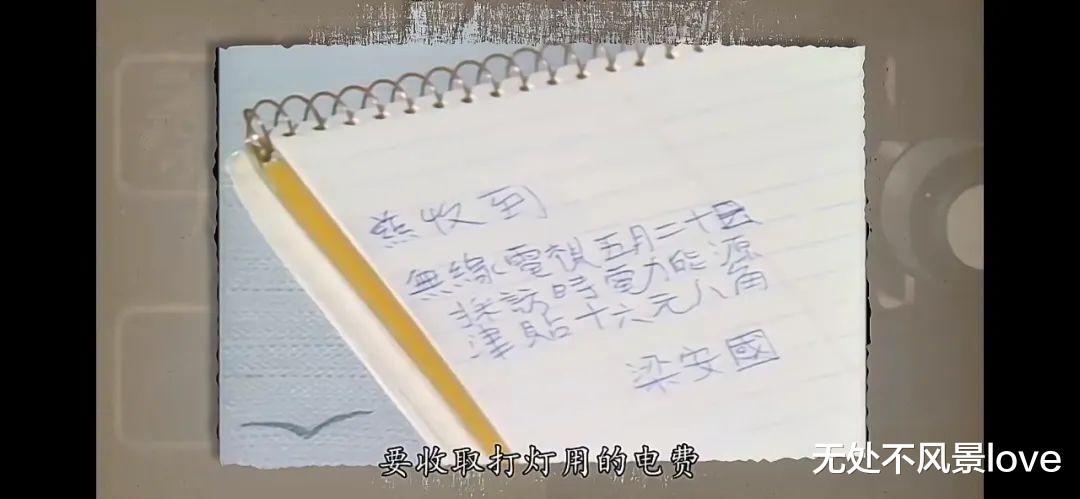 茲收到
無線電視五月二十四
採訪時電力能源
津貼十六元八角
梁安國
要收取打灯用的电费
无处不风景love